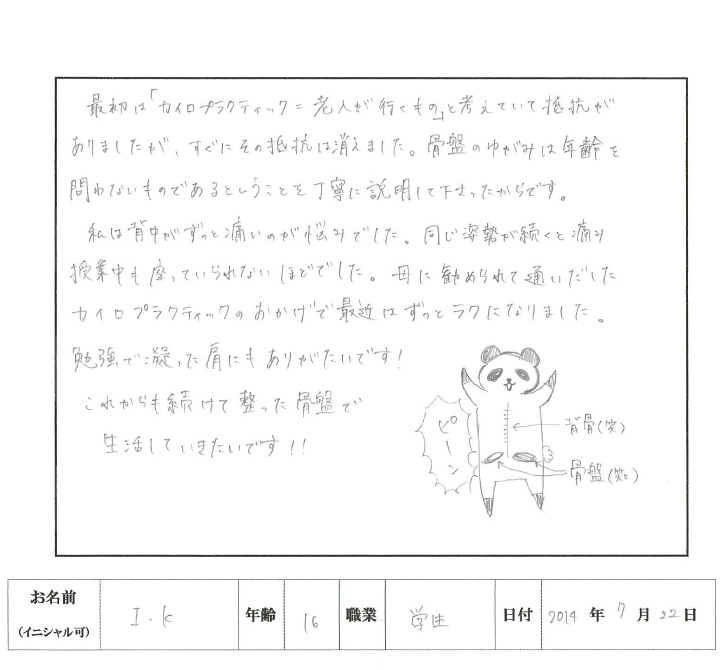 最初は「カイロプラクティック＝老人が行くもの」と考えていて抵抗が
ありましたが、すぐにその抵抗は消えました。骨盤のゆがみは年齢を
問わないものであるということを丁寧に説明して下さったからです。
私は背中がずっと痛いのが悩みでした。同じ姿勢が続くと痛み
授業中も座っていられないほどでした。母に勧められて通いだした
カイロプラクティックのおかげで最近はずっとラクになりました。
勉強で凝った肩にもありがたいです!
これからも続けて整った骨盤で
生活していきたいです!!
ピーン
背骨(笑)
骨盤(笑)
お名前 (イニシャル可) I.K 年齢 16 職業 学生 日付 2014 年 7 月 22 日